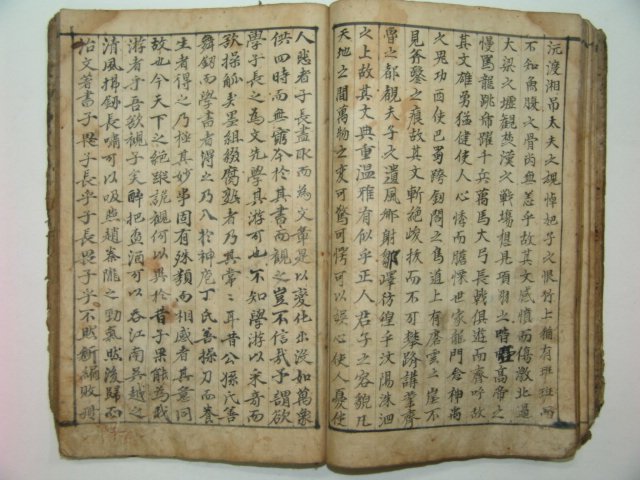 沅渡湘吊大夫之魂悼妃子之恨竹上猶有班班而
不知魚腹之骨尚無恙乎故其文感憤而傷激北過
大梁之墟觀楚漢之戰場想見項羽之喑啞高帝之
慢罵龍跳虎躍千兵萬馬大弓長戟俱遊而齊呼故
其文雄勇猛健使人心悸而膽慄世家龍門念神禹
之鬼功西使巴蜀跨劍閣之鳥道上有摩雲之崖不
見斧鑿之痕故其文斬絕峻拔而不可攀躋講業齊
魯之都覩夫子之遺風鄉射鄒嶧彷徨乎汶陽洙泗
之上故其文典重溫雅有似乎正人君子之容貌凡
天地之間萬物之變可驚可愕可以娛心使人憂使
人悲者子長盡取而為文章是以變化出沒如萬象
供四時而無窮今於其書而觀之豈不信哉予謂欲
學子長之為文先學其游可也不知學游以采奇而
欲操觚弄墨組綴腐熟者乃其常常耳昔公孫氏善
舞劍而學書者得之乃入於神庖丁氏善操刀而養
生者得之乃極其妙事固有殊類而相感者其意同
故也今天下之絕蹤詭觀何以異於昔子果能為我
游者乎吾欲觀子矣醉把盃酒可以吞江南吳越之
清風拂劍長嘯可以吸燕趙秦隴之勁氣然後歸而
治文著書子畏子長乎子長畏子乎不然斷編敗冊